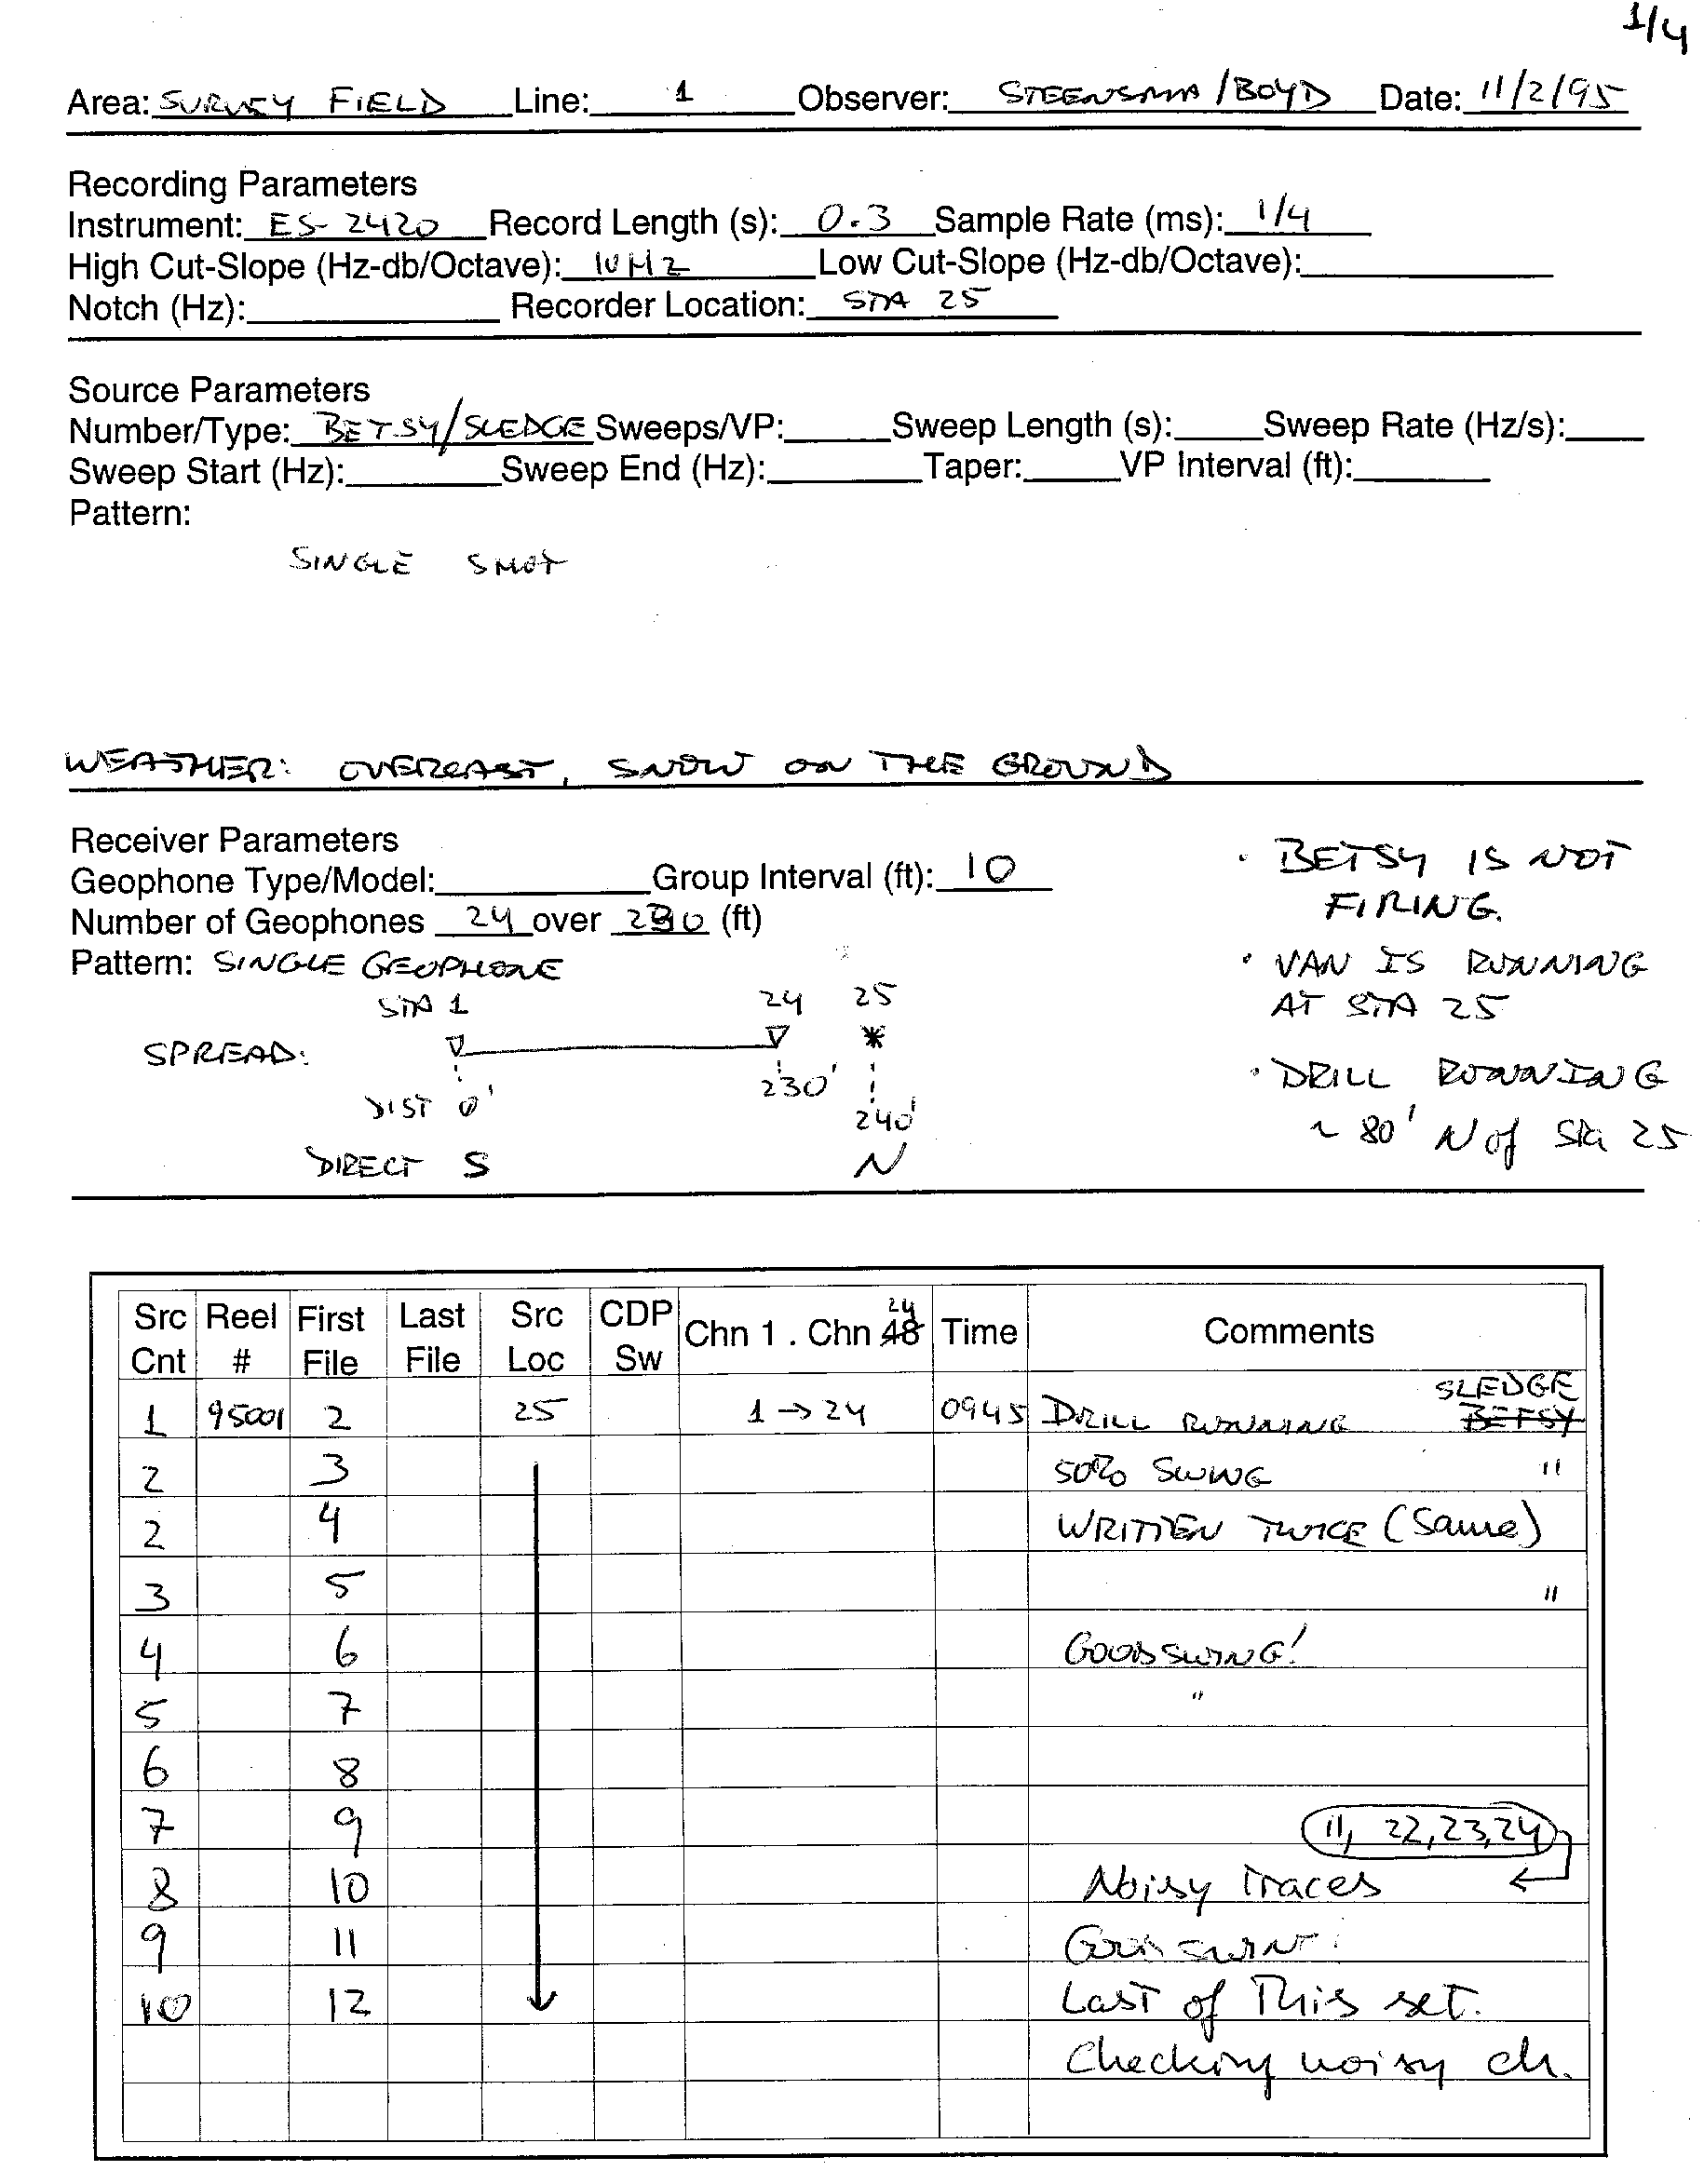 1/4
Area: SURVEY FIELD Line: 1 Observer: STEENSMA/BOYD Date: 11/2/95
Recording Parameters
Instrument: ES-2420 Record Length (s): 0.3 Sample Rate (ms): 1/4
High Cut-Slope (Hz-db/Octave): Low Cut-Slope (Hz-db/Octave):
Notch (Hz): Recorder Location: STA 25
Source Parameters
Number/Type: BETSY/SLEDGE Sweeps/VP: Sweep Length (s): Sweep Rate (Hz/s):
Sweep Start (Hz): Sweep End (Hz): Taper: VP Interval (ft):
Pattern:
SINGLE SHOT
WEATHER: OVERCAST, SNOW ON THE GROUND
Receiver Parameters
Geophone Type/Model: Group Interval (ft): 10
Number of Geophones 24 over 230 (ft)
Pattern: SINGLE GEOPHONE
STA 1 24 25
SPREAD:
DIST 0' 230' 240'
DIRECT S N
· BETSY IS NOT
FIRING.
· VAN IS RUNNING
AT STA 25
· DRILL RUNNING
~ 80' N of Sta 25
Src Cnt Reel # First File Last File Src Loc CDP Sw Chn 1 . Chn 48 24 Time Comments
1 95001 2 25 1 → 24 0945 DRILL RUNNING BETSY SLEDGE
2 3 50% SWING "
2 4 WRITTEN TWICE (Same)
3 5 "
4 6 GOOD SWING!
5 7 "
6 8
7 9 11, 22, 23, 24
8 10 Noisy Traces
9 11
10 12 Last of This set.
Checking noisy ch.